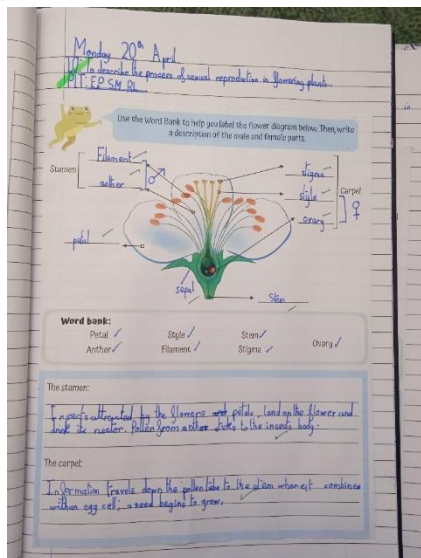 Monday 20th April
LO: To describe the process of sexual reproduction in flowering plants
Use the Word Bank to help you label the flower diagram below. Then, write
a description of the male and female parts.
Stamen
Filament
anther
petal
stigma
style
ovary
Carpel
sepal
Stem
Word bank:
Petal
Style
Stem
Ovary
Anther
Filament
Stigma
The stamen:
Insects attracted by the flowers petals, land on the flower and
drink its nectar. Pollen from anther sticks to the insect's body.
The carpet:
Information travels down the pollen tube to the stem when it combines
with an egg cell; a seed begins to grow.